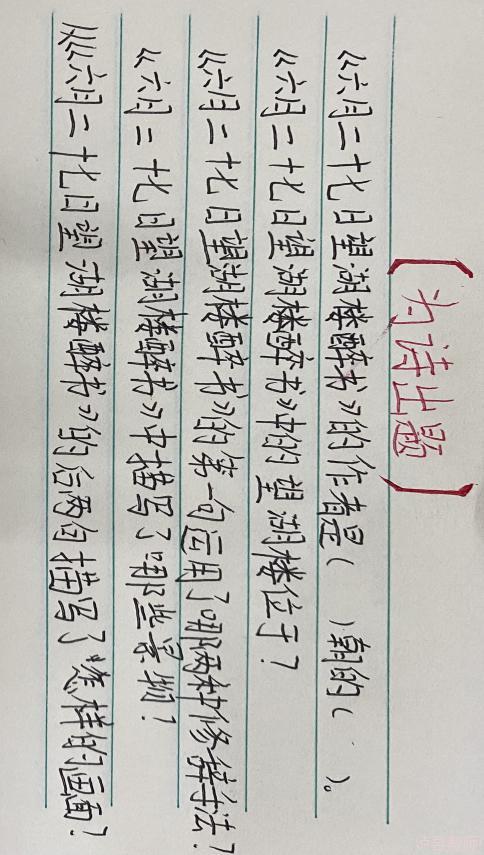 【为诗出题】
《六月二十七日望湖楼醉书》的作者是(  )朝的(  )。
《六月二十七日望湖楼醉书》中的望湖楼位于?
《六月二十七日望湖楼醉书》的第一句运用了哪两种修辞手法?
《六月二十七日望湖楼醉书》中描写了哪些景物?
从《六月二十七日望湖楼醉书》的后两句描写了怎样的画面?